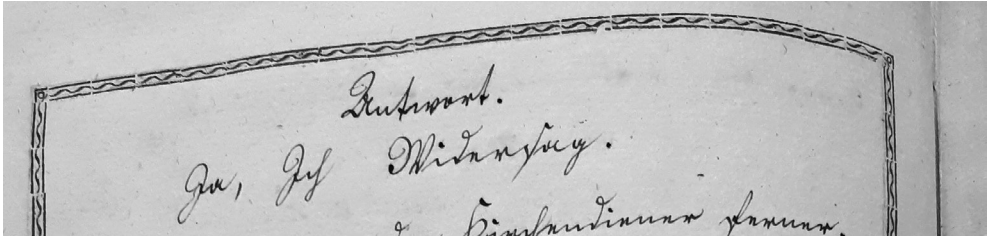 Antwort.
Ja, Ich Widersag.
Kirchendiener ferner.